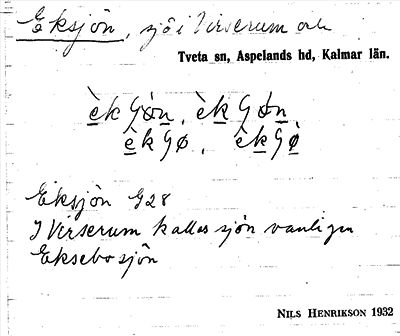 Eksjön, sjö i Virserum och
Tveta sn, Aspelands hd, Kalmar län.
Eksjön G28
I Virserum kallas sjön vanligen
Eksebosjön
NILS HENRIKSON 1932